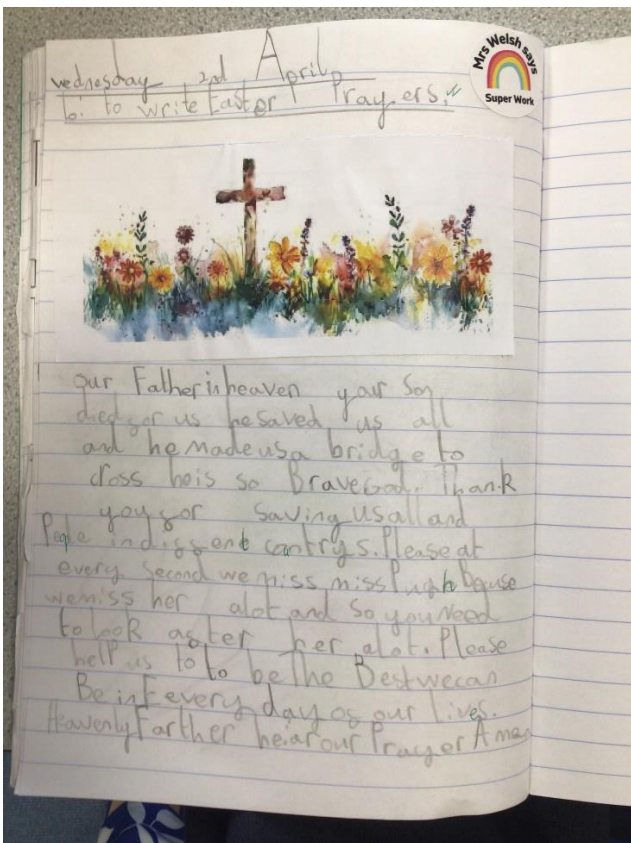 Wednesday 2nd April
L: to write Easter Prayers.
Mrs Welsh says
Super Work
our Father in heaven your Son
died for us he saved us all
and he made us a bridge to
cross he is so Brave God. Thank
you for saving us all and
Peple in diffrent cantrys. Please at
every second we miss miss Pugh Becuse
we miss her alot and so you Need
to look after her alot. Please
help us to to be the Best we can
Be in Every day of our Lives.
Heavenly Farther heiar our Prayer Amen